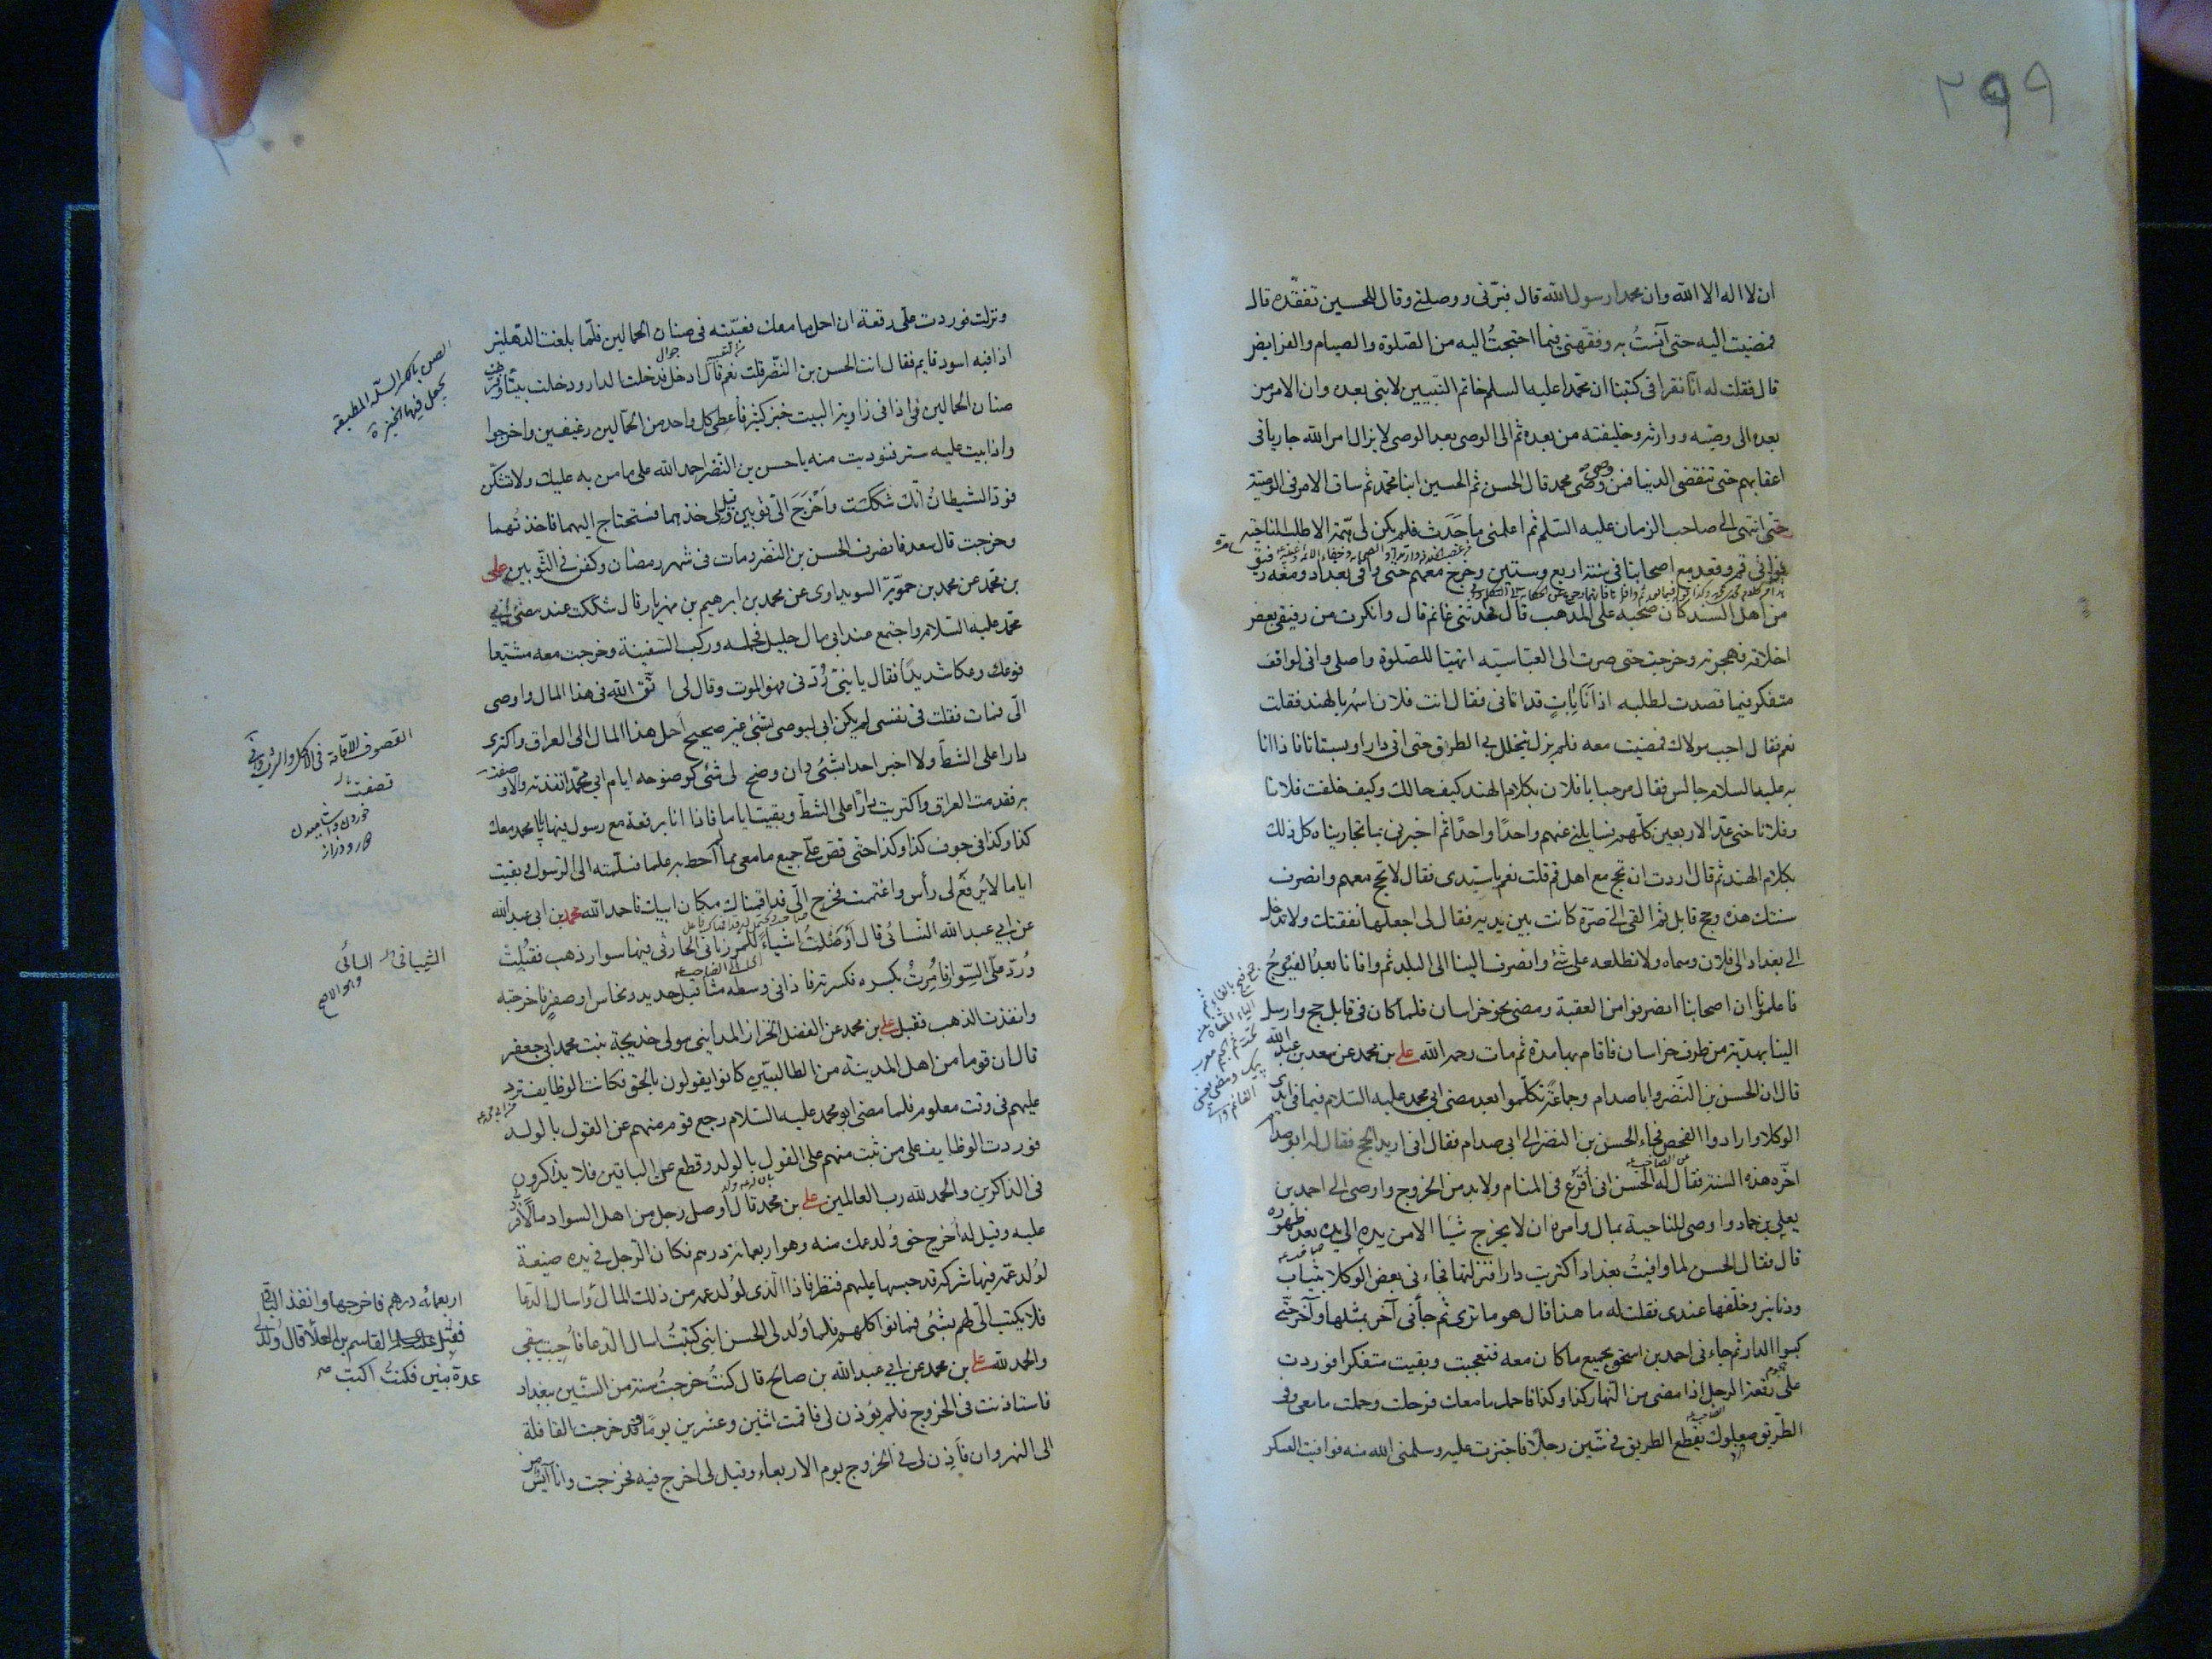 ٢٩٩
ان لا اله الا الله وان محمدا رسول الله قال فبرّني ووصلني وقال للحسين تفقّده قال
فمضيت اليه حتى آنستُ به وفقّهني فيما احتجتُ اليه من الصّلوة والصيام والفرايض
قال فقلت له انّا نقرا فى كتبنا ان محمّدا عليه السلم خاتم النّبيين لا نبى بعده وان الامر من
بعده الى وصيّه ووارثه وخليفته من بعده ثم الى الوصى بعد الوصى لا يزال امر الله جاريا فى
اعقابهم حتى تنقضى الدنيا فمن وصىّ وصىّ محمد قال الحسن ثم الحسين ابنا محمد ثم ساق الامر فى الوصيّة
حتى انتهى الى صاحب الزمان عليه السّلم ثم اعلمنى ما حَدَث فلم يكن لى همّة الا طلب الناحية
فوافى قم وقعد مع اصحابنا فى سنة اربع وستين وخرج معهم حتى وافى بغداد ومعه رفيق
من اهل السند كان صحبه على المذهب قال فحدّثنى غانم قال وانكرت من رفيقى بعض
اخلاقه فهجرته وخرجت حتى صرت الى العبّاسيّة اتهيّا للصّلوة واصلى وانى لواقف
متفكر فيما قصدت لطلبه اذا انَا بِآتٍ قد اتانى فقال انت فلان اسمُه بالهند فقلت
نعم فقال اجب مولاك فمضيت معه فلم يزل يتخلل بى الطرق حتى اتى دارا وبستانا فاذا انا
به عليه السلام جالس فقال مرحبا يا فلان بكلام الهند كيف حالك وكيف خلفت فلانا
وفلانا حتى عدّ الاربعين كلّهم فسايلنى عنهم واحدًا واحدًا ثم اخبرنى بما تجارينا ه كل ذلك
بكلام الهند ثم قال اردت ان تحج مع اهل قم قلت نعم يا سيّدى فقال لا تحج معهم وانصرف
سنتك هذه وحج قابل ثم القى الىّ صرّة كانت بين يديه فقال لى اجعلها نفقتك ولا تدخل
الى بغداد الى فلان وسماه ولا تطلعه على شئ وانصرف الينا الى البلد ثم وافانا بعدُ الفيُوجُ
فاعلمونا ان اصحابنا انصرفوا من العقبة ومضى نحو خراسان فلما كان فى قابل حج وارسل
الينا بهديّة من طرف خراسان فاقام بها مدة ثم مات رحمه الله على بن محمد عن سعد بن عبد الله
قال ان الحسن بن النّضر وابا صدام وجماعةً تكلّموا بعد مضىّ ابى محمد عليه السّلام فيما فى ايدى
الوكلا وارادوا الفحص فجاء الحسن بن النضر الى ابى صدام فقال انى اريد الحج فقال له ابو صدام
اخّره هذه السّنة فقال له الحسن انى افزع فى المنام ولا بد من الخروج واوصى الى احمد بن
يعلى بن حماد واوصى للناحية بمال وامره ان لا يخرج شيئا الا من يده الى يده بعد ظهوره
قال فقال الحسن لما وافيتُ بغداد اكتريت دارا فنزلتها فجاءنى بعض الوكلا بثياب
ودنانير وخلّفها عندى فقلت له ما هذا قال هو ما ترى ثم جاءنى آخر بمثلها وآخر حتّى
كبسوا الدار ثم جاءنى احمد بن اسحق بجميع ما كان معه فتعجبت وبقيت متفكرا فوردت
علىّ رقعة الرجل اذا مضى من النّهار كذا وكذا فاحمل ما معك فرحلت وحملت ما معى وفى
الطّريق صعلوك يقطع الطريق فى ستّين رجلًا فاجتزت عليه وسلمنى الله منه فوافيت العسكر
جمع فيج بالفاء ثم
الياء المثناة من
تحت ثم الجيم معرب
پيك
ونزلت فوردت علىّ رقعة ان احمل ما معك فعبّيته فى صنان الحمالين فلمّا بلغت الدّهليز
اذا فيه اسود قايم فقال انت الحسن بن النّضر قلت نعم قال ادخل فدخلت الدار ودخلت بيتًا وفرّغت
صنان الحمالين فى اذا فى زاوية البيت خبز كثير فأعطى كل واحد من الحمّالين رغيفين واخرجوا
واذا بيت عليه ستر فنوديت منه يا حسن بن النّضر احمد الله على ما منّ به عليك ولا تشكّن
فودّ الشيطانُ انّك شككتَ واَخْرَجَ الىّ ثوبين وقيل لى خذهما فستحتاج اليهما فاخذتُهما
وخرجت قال سعد فانصرف الحسن بن النّضر ومات فى شهر رمضان وكفن فى الثّوبين على
بن محمّد عن محمد بن حمّويّة السويداوى عن محمد بن ابرهيم بن مهزيار قال شككت عند مضىّ ابى
محمّد عليه السّلام واجتمع عند ابى مال جليل فحمله وركب السّفينة وخرجت معه مشيّعا
فوعك وعكا شديدًا فقال يا بنىّ رُدّنى فهو الموت وقال لى اتّق الله فى هذا المال واوصى
الىّ فمات فقلت فى نفسى لم يكن ابى ليوصى بشئ غير صحيح احمل هذا المال الى العراق واكترى
دارا على الشطّ ولا اخبر احدا بشئ وان وضح لى شئ كوضوحه ايام ابى محمّد انفذته والا قصفت
به فقدمت العراق واكتريت دارًا على الشطّ وبقيت اياما فاذا انا برقعة مع رسول فيها يا محمد معك
كذا وكذا فى جوف كذا وكذا حتّى قصّ علىّ جميع ما معى مما لم احط به علما فسلّمته الى الرّسول وبقيت
اياما لا يُرفعُ لى رأس واغتممت فخرج الىّ قد اقمناك مكان ابيك فاحمد الله محمد بن ابى عبد الله
عن ابى عبد الله النّسائى قال أوصَلْتُ اشياءَ للمرزبانى الحارثى فيها سوار ذهب فقُبِلتْ
ورُدّ علىّ السّوار فاُمِرتُ بكسره فكسرته فاذا فى وسطه مثاقيل حديد ونحاس او صفرٍ فاخرجته
وانفذت الذهب فقبل على بن محمد عن الفضل الخزاز المداينى مولى خديجة بنت محمد ابى جعفر
قال ان قوما من اهل المدينة من الطالبيّين كانوا يقولون بالحق فكانت الوظايف ترد
عليهم فى وقت معلوم فلما مضى ابو محمد عليه السّلام رجع قوم منهم عن القول بالولد
فوردت الوظايف على من ثبت منهم على القول بالولد وقطع عن الباقين فلا يذكرون
فى الذاكرين والحمد لله رب العالمين على بن محمد قال اوصل رجل من اهل السواد مالًا فردّ
عليه وقيل له أخرج حق وُلد عمك منه وهو اربعمائة درهم فكان الرّجل فى يده ضيعة
لوُلد عمّه فيها شركة قد حبسها عليهم فنظر فاذا الّذى لوُلد عمه من ذلك المال
فلا يكتب الىّ لهم بشئ فماتوا كلهم فلما وُلد لى الحسن ابنى كتبتُ اسال الدّعا فاُجبت يبقى
والحمد لله على بن محمد عن ابى عبد الله بن صالح قال كنتُ خرجتُ سنة من السّنين ببغداد
فاستاذنت فى الخروج فلم يؤذن لى فاقمت اثنين وعشرين يومًا وقد خرجت القافلة
الى النهروان فَاُذِن لى فى الخروج يوم الاربعاء وقيل لى اخرج فيه فخرجت وانا آيسٌ من
الصن بالكسر السلّة المطبقة
يجعل فيها الخبز
القصوف الاقامة فى الاكل والشرب
قصفت
الشيبانى
النسائى
وهو الاصح
اربعمائه درهم فاخرجها وانفذ الباقى
فقبل القاسم بن العلا قال وُلد لى
عدة بنين فكنتُ اكتب